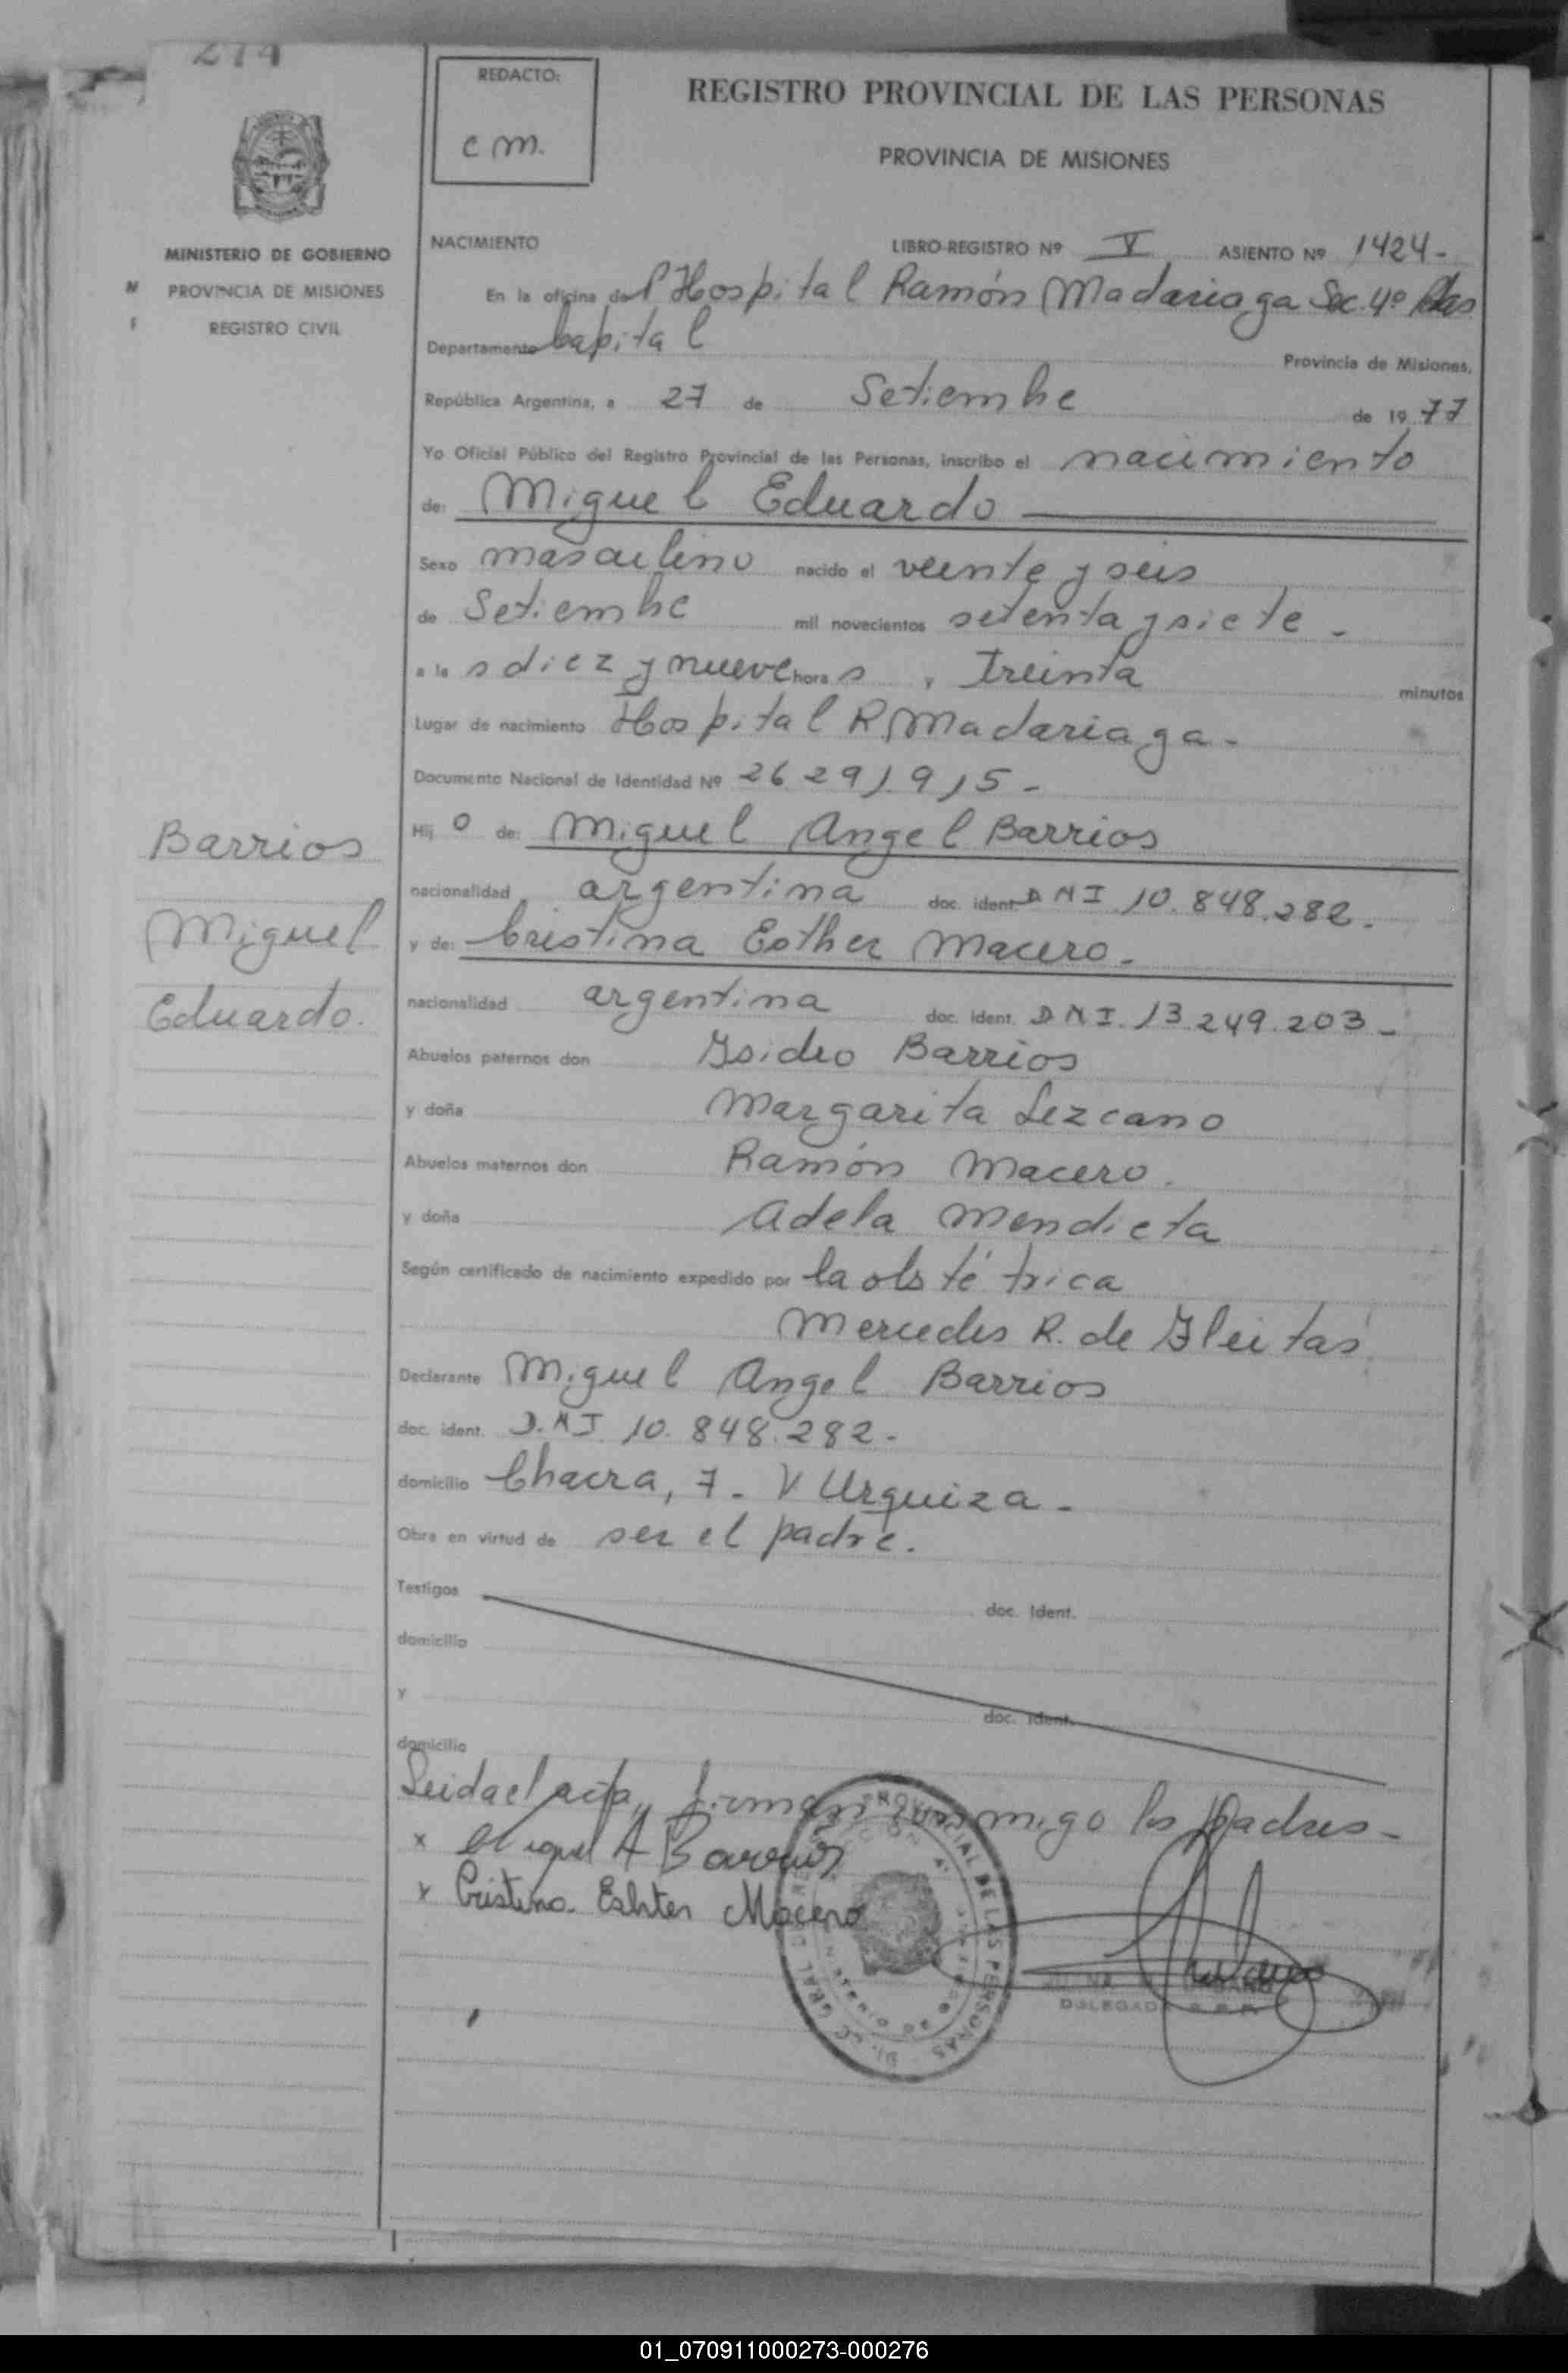 274
REDACTO:
C M.
REGISTRO PROVINCIAL DE LAS PERSONAS
PROVINCIA DE MISIONES
MINISTERIO DE GOBIERNO
PROVINCIA DE MISIONES
REGISTRO CIVIL
M
F
Barrios
Miguel
Eduardo.
NACIMIENTO LIBRO-REGISTRO Nº V ASIENTO Nº 1424-
En la oficina del Hospital Ramón Madariaga Sec. 4º Pdas
Departamento Capital Provincia de Misiones,
República Argentina, a 27 de Setiembre de 1977
Yo Oficial Público del Registro Provincial de las Personas, inscribo el nacimiento
de: Miguel Eduardo
Sexo masculino nacido el veinte y seis
de Setiembre mil novecientos setenta y siete -
a las diez y nueve horas y treinta minutos
Lugar de nacimiento Hospital R. Madariaga -
Documento Nacional de Identidad Nº 26.291.915 -
Hijo de: Miguel Angel Barrios
nacionalidad argentina doc. ident. D N I 10.848.282.
y de: Cristina Esther Macero -
nacionalidad argentina doc. ident. D N I. 13.249.203 -
Abuelos paternos don Ysidro Barrios
y doña Margarita Lezcano
Abuelos maternos don Ramón Macero.
y doña Adela Mendieta
Según certificado de nacimiento expedido por la obstétrica
Mercedes R. de Gleitas.
Declarante Miguel Angel Barrios
doc. ident. D.N I. 10.848.282 -
domicilio Chacra, 7 - V Urquiza -
Obra en virtud de ser el padre.
Testigos doc. Ident.
domicilio
y doc. Ident.
domicilio
Leida el acta, firman conmigo los padres -
x Miguel A Barrios
x Cristina Eshter Macero
PROVINCIAL DE LAS PERSONAS
DELEGADA
01_070911000273-000276